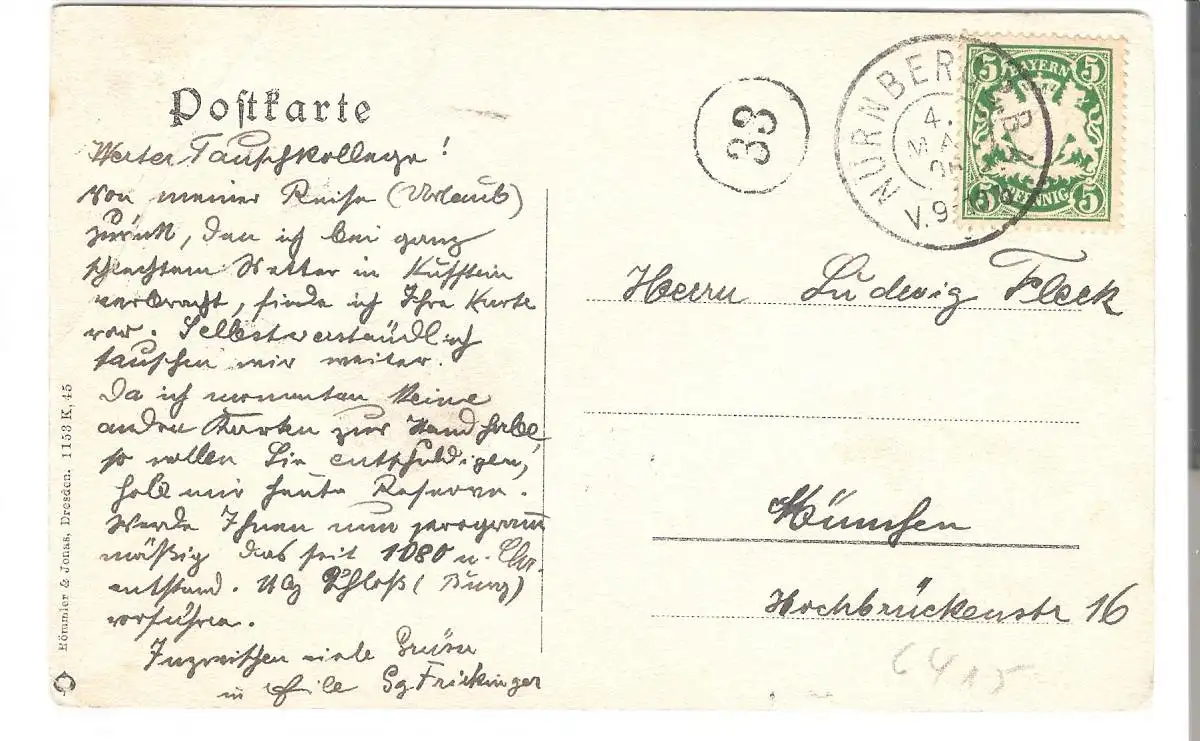 Postkarte
Werter Tauschkollege!
Von meiner Reise (Urlaub)
zurück, den ich bei ganz
schlechtem Wetter in Kufstein
verbracht, finde ich Ihre Karte
vor. Selbstverständlich
tauschen wir weiter.
Da ich momentan keine
andern Karten zur Hand habe,
so wollen Sie entschuldigen,
heute Reserve.
Werde Ihnen nun programm
mäßig das seit 1080 n. Chr.
entstand. Schloß (Burg)
vorführen.
Inzwischen viele Grüße
in Eile Sg. Frickinger
Römmler & Jonas, Dresden. 1153 K, 45
33
NÜRNBERG
4.
V. 9
BAYERN
5 5
5 PFENNIG 5
Herrn Ludwig Fleck
München
Hochbrückenstr 16
6415